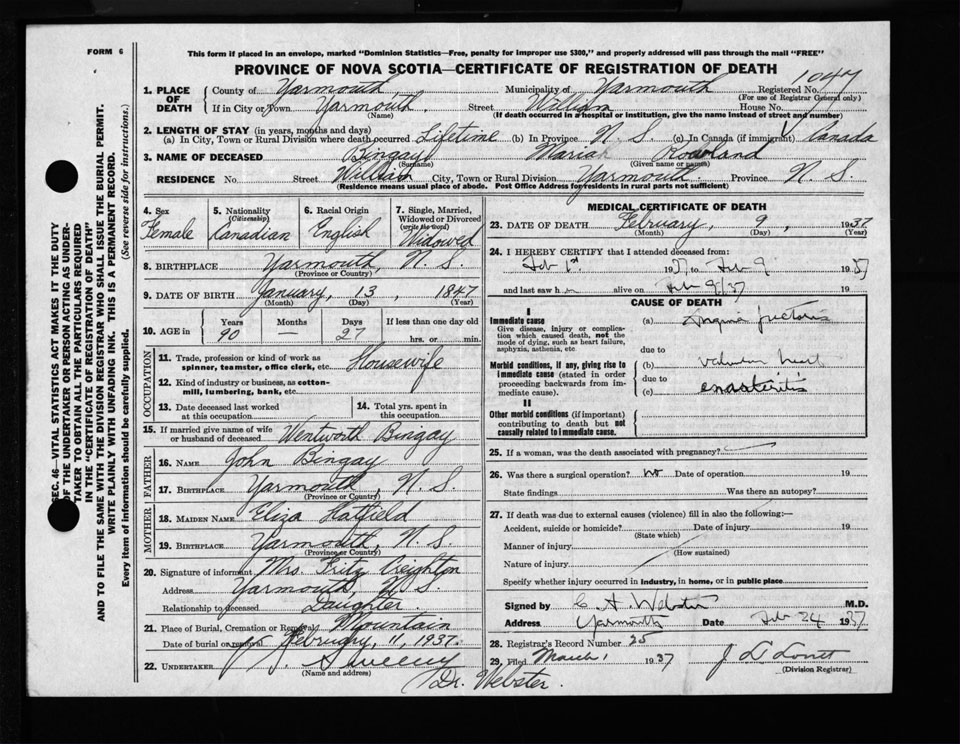 FORM 6
SEC. 46—VITAL STATISTICS ACT MAKES IT THE DUTY
OF THE UNDERTAKER OR PERSON ACTING AS UNDER-
TAKER TO OBTAIN ALL THE PARTICULARS REQUIRED
IN THE "CERTIFICATE OF REGISTRATION OF DEATH"
AND TO FILE THE SAME WITH THE DIVISION REGISTRAR WHO SHALL ISSUE THE BURIAL PERMIT.
WRITE PLAINLY WITH UNFADING INK. THIS IS A PERMANENT RECORD.
Every item of information should be carefully supplied. (See reverse side for instructions.)
This form if placed in an envelope, marked "Dominion Statistics—Free, penalty for improper use $300," and properly addressed will pass through the mail "FREE"
PROVINCE OF NOVA SCOTIA—CERTIFICATE OF REGISTRATION OF DEATH
1. PLACE OF DEATH County of Yarmouth Municipality of Yarmouth Registered No. 1047
(For use of Registrar General only)
If in City or Town Yarmouth. Street William House No.
(Name) (If death occurred in a hospital or institution, give the name instead of street and number)
2. LENGTH OF STAY (in years, months and days)
(a) In City, Town or Rural Division where death occurred Lifetime (b) In Province N. S. (c) In Canada (if immigrant) Canada
3. NAME OF DECEASED Bingay Mariah Rowland
(Surname) (Given name or names)
RESIDENCE No. Street William City, Town or Rural Division Yarmouth. Province N. S.
(Residence means usual place of abode. Post Office Address for residents in rural parts not sufficient)
4. Sex Female
5. Nationality (Citizenship) Canadian
6. Racial Origin English
7. Single, Married, Widowed or Divorced (write the word) Widowed
8. BIRTHPLACE Yarmouth, N. S.
(Province or Country)
9. DATE OF BIRTH January, 13, 1847
(Month) (Day) (Year)
10. AGE in Years 90 Months — Days 27 If less than one day old
hrs. or min.
OCCUPATION
11. Trade, profession or kind of work as spinner, teamster, office clerk, etc. Housewife
12. Kind of industry or business, as cotton-mill, lumbering, bank, etc.
13. Date deceased last worked at this occupation
14. Total yrs. spent in this occupation
15. If married give name of wife or husband of deceased Wentworth Bingay
FATHER
16. NAME John Bingay
17. BIRTHPLACE Yarmouth, N. S.
(Province or Country)
MOTHER
18. MAIDEN NAME Eliza Hatfield
19. BIRTHPLACE Yarmouth, N. S.
(Province or Country)
20. Signature of informant Mrs. Fritz Creighton
Address Yarmouth, N. S.
Relationship to deceased Daughter.
21. Place of Burial, Cremation or Removal Mountain
Date of burial or removal February, 11, 1937.
22. UNDERTAKER Sweeny
(Name and address)
Dr. Webster.
MEDICAL CERTIFICATE OF DEATH
23. DATE OF DEATH February, 9, 1937.
(Month) (Day) (Year)
24. I HEREBY CERTIFY that I attended deceased from:
Feb 1st 1937 to Feb 9 1937
and last saw h alive on Feb 9/37 19
CAUSE OF DEATH
I
Immediate cause
Give disease, injury or complication which caused death, not the mode of dying, such as heart failure, asphyxia, asthenia, etc.
(a) Angina pectoris
due to
Morbid conditions, if any, giving rise to immediate cause (stated in order proceeding backwards from immediate cause).
(b) heart
due to
(c) endarteritis
II
Other morbid conditions (if important) contributing to death but not causally related to immediate cause.
25. If a woman, was the death associated with pregnancy?
26. Was there a surgical operation? no Date of operation 19
State findings Was there an autopsy?
27. If death was due to external causes (violence) fill in also the following:—
Accident, suicide or homicide? Date of injury 19
(State which)
Manner of injury
(How sustained)
Nature of injury
Specify whether injury occurred in industry, in home, or in public place
Signed by C A Webster M.D.
Address Yarmouth Date Feb 24 1937
28. Registrar's Record Number 25
29. Filed March 1 1937
(Division Registrar)